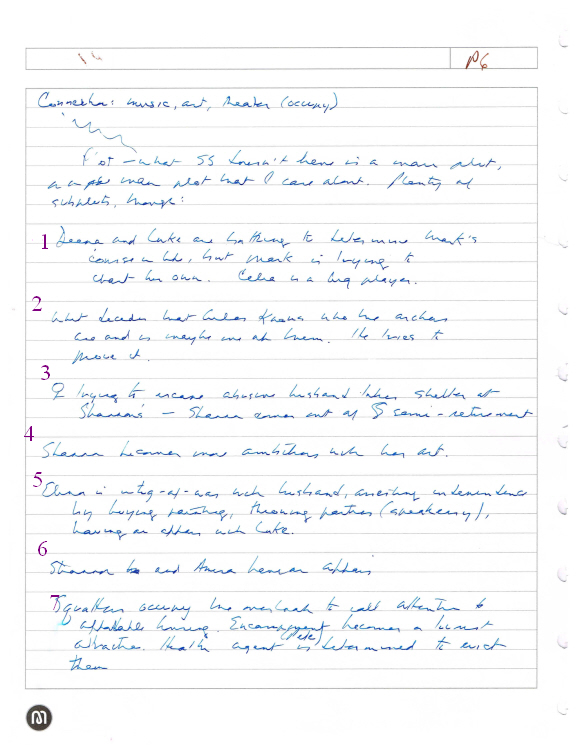 P6
Connection: music, art, theater (occupy)
Plot – what SS doesn't have is a main plot,
or a main plot that I care about. Plenty of
subplots, though:
1 Deena and Luke are battling to determine Mark's
course in life, but Mark is trying to
chart his own. Celia is a big player.
2 decides that knows who the
are and is maybe one of them. He tries to
prove it.
3
♀ trying to escape abusive husband takes shelter at
Shannon's – comes out of semi-retirement
4
becomes more ambitious with her art.
5 Elena is with husband, asserting independence
by buying painting, throwing parties (speakeasy),
having an affair with Luke.
6
and have an affair
7 Squatters occupy the overlook to call attention to
affordable housing. Encampment becomes a tourist
attraction. Health agent (Pete) is determined to evict
them